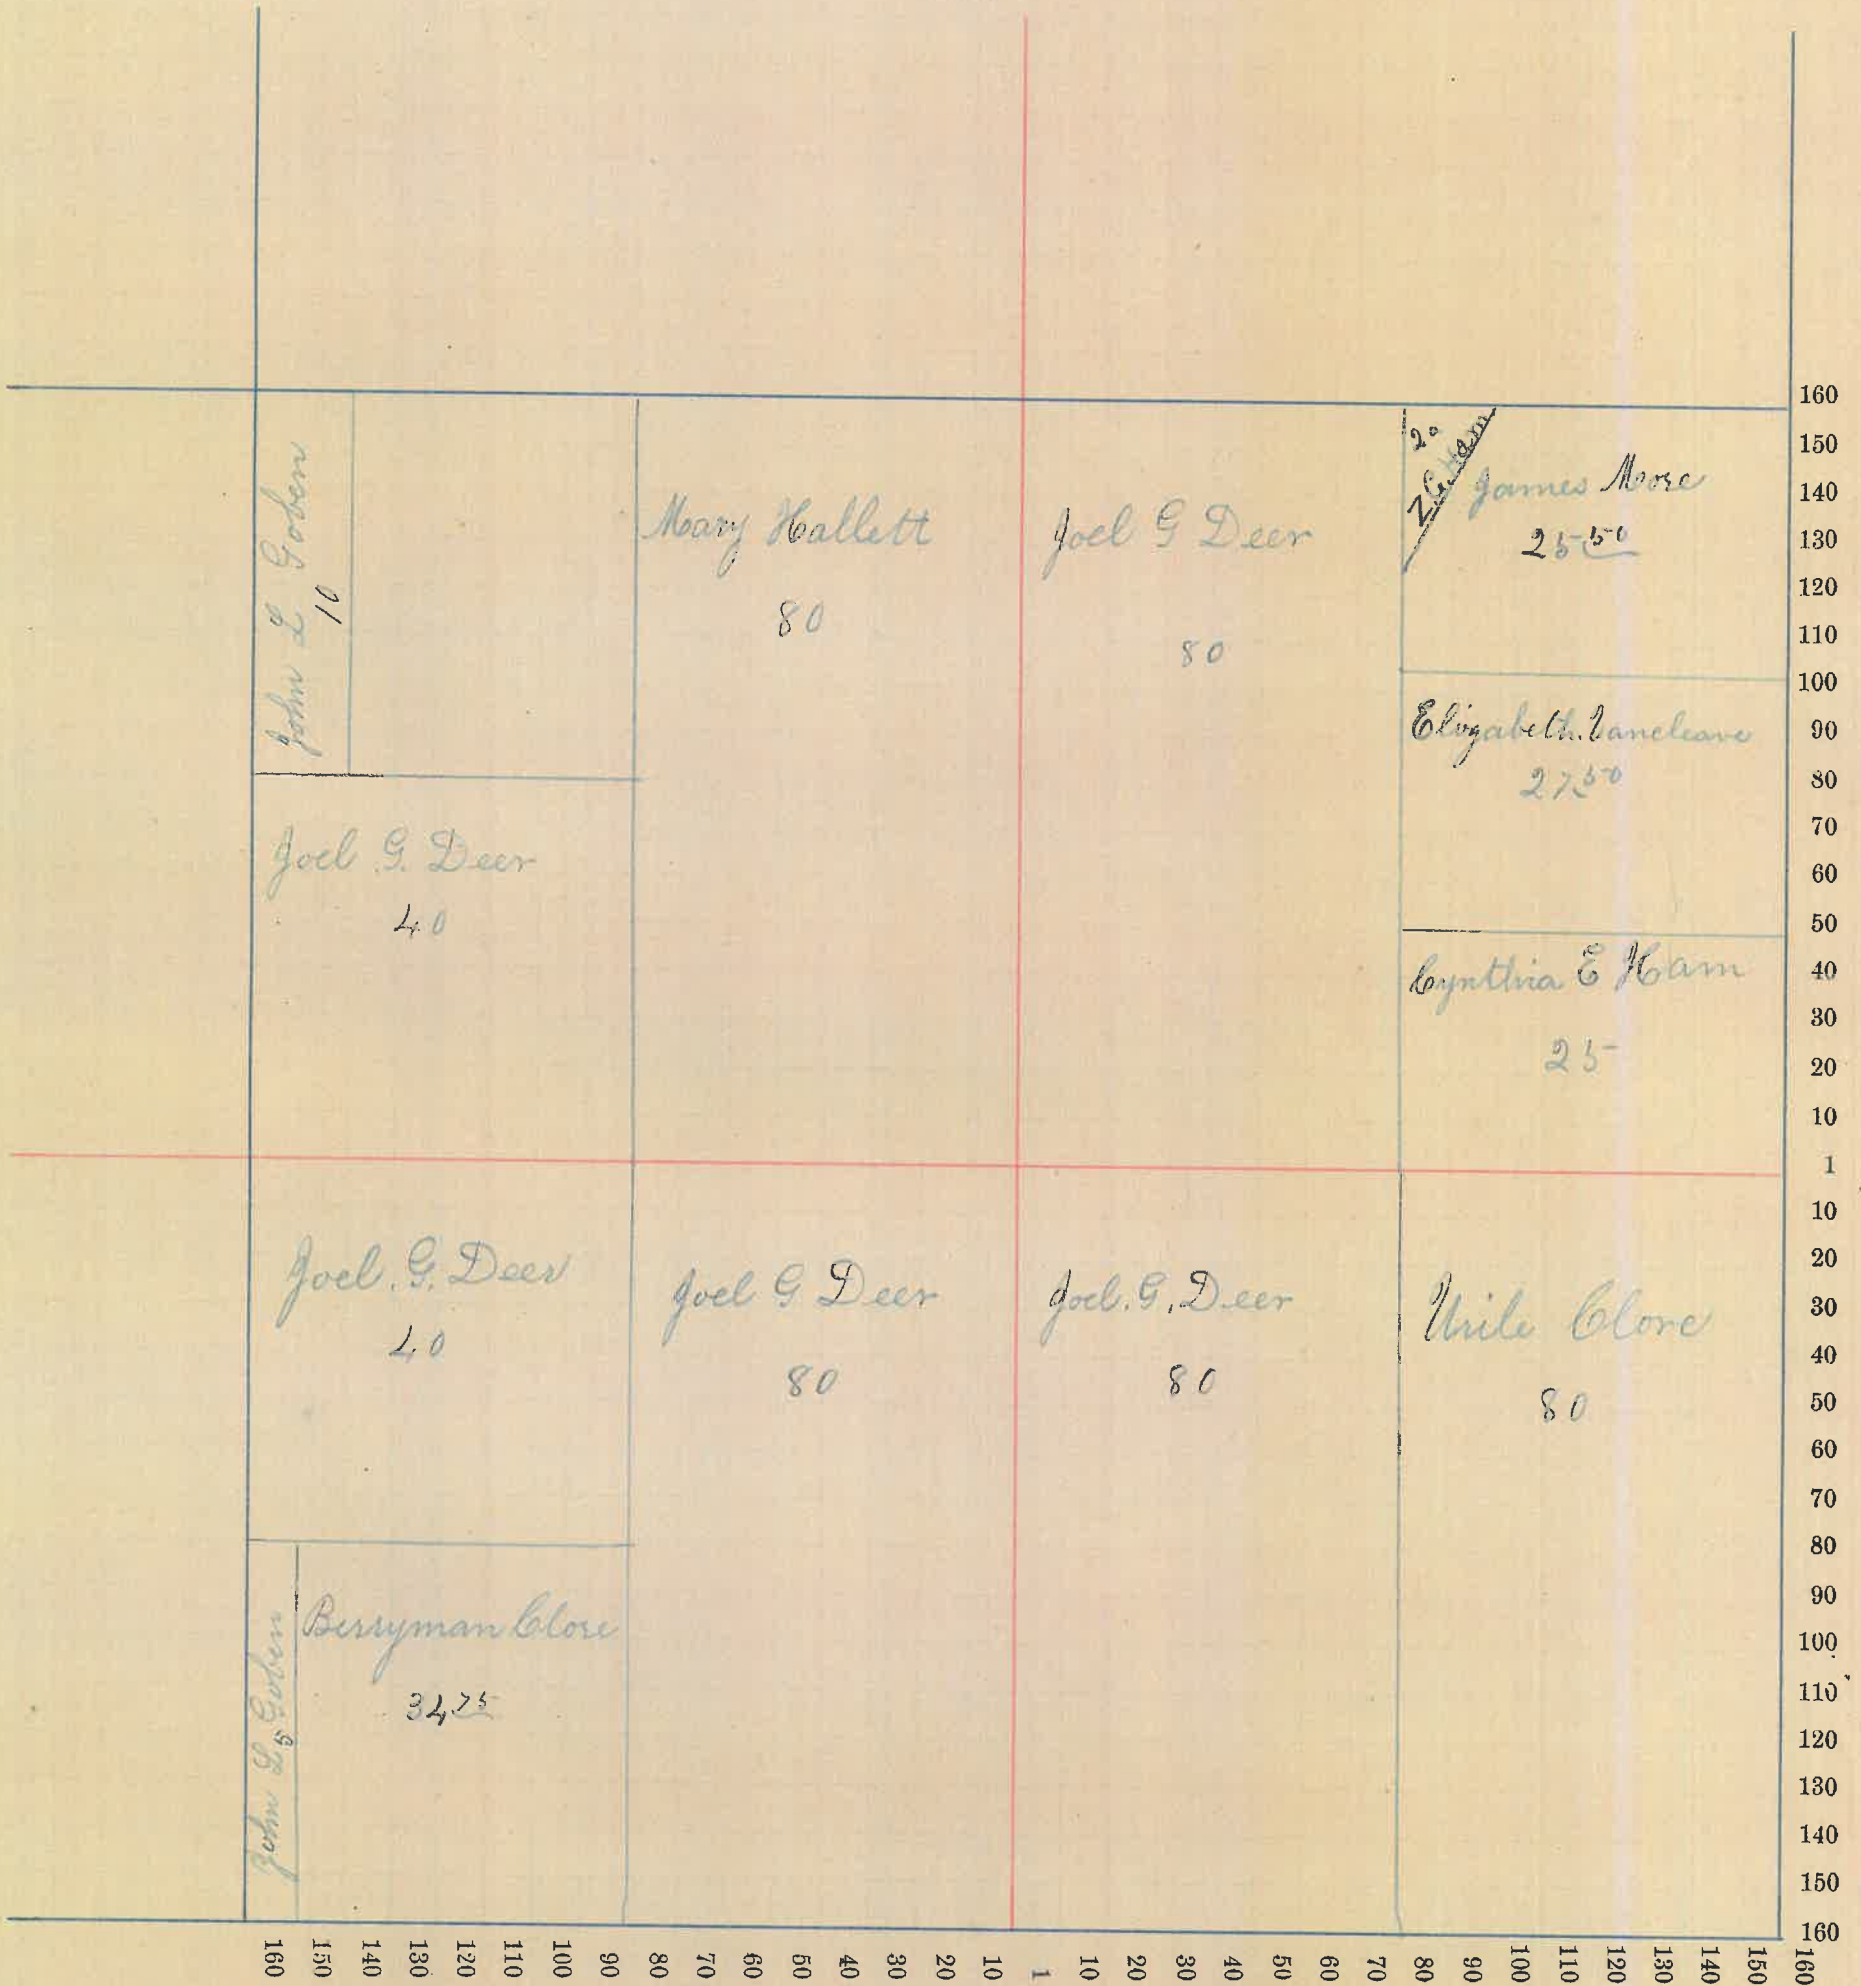 John L Goben
10
Mary Hallett
80
Joel G Deer
80
20
Z G Ham
James More
25 50
Elizabeth Vancleave
27 50
Cynthia E Ham
25
Joel G. Deer
40
Joel. G. Deer
40
Joel G Deer
80
Joel. G. Deer
80
Urile Clore
80
John L Goben
5
Berryman Clore
34 75
160
150
140
130
120
110
100
90
80
70
60
50
40
30
20
10
1
10
20
30
40
50
60
70
80
90
100
110
120
130
140
150
160
160 150 140 130 120 110 100 90 80 70 60 50 40 30 20 10 1 10 20 30 40 50 60 70 80 90 100 110 120 130 140 150 160